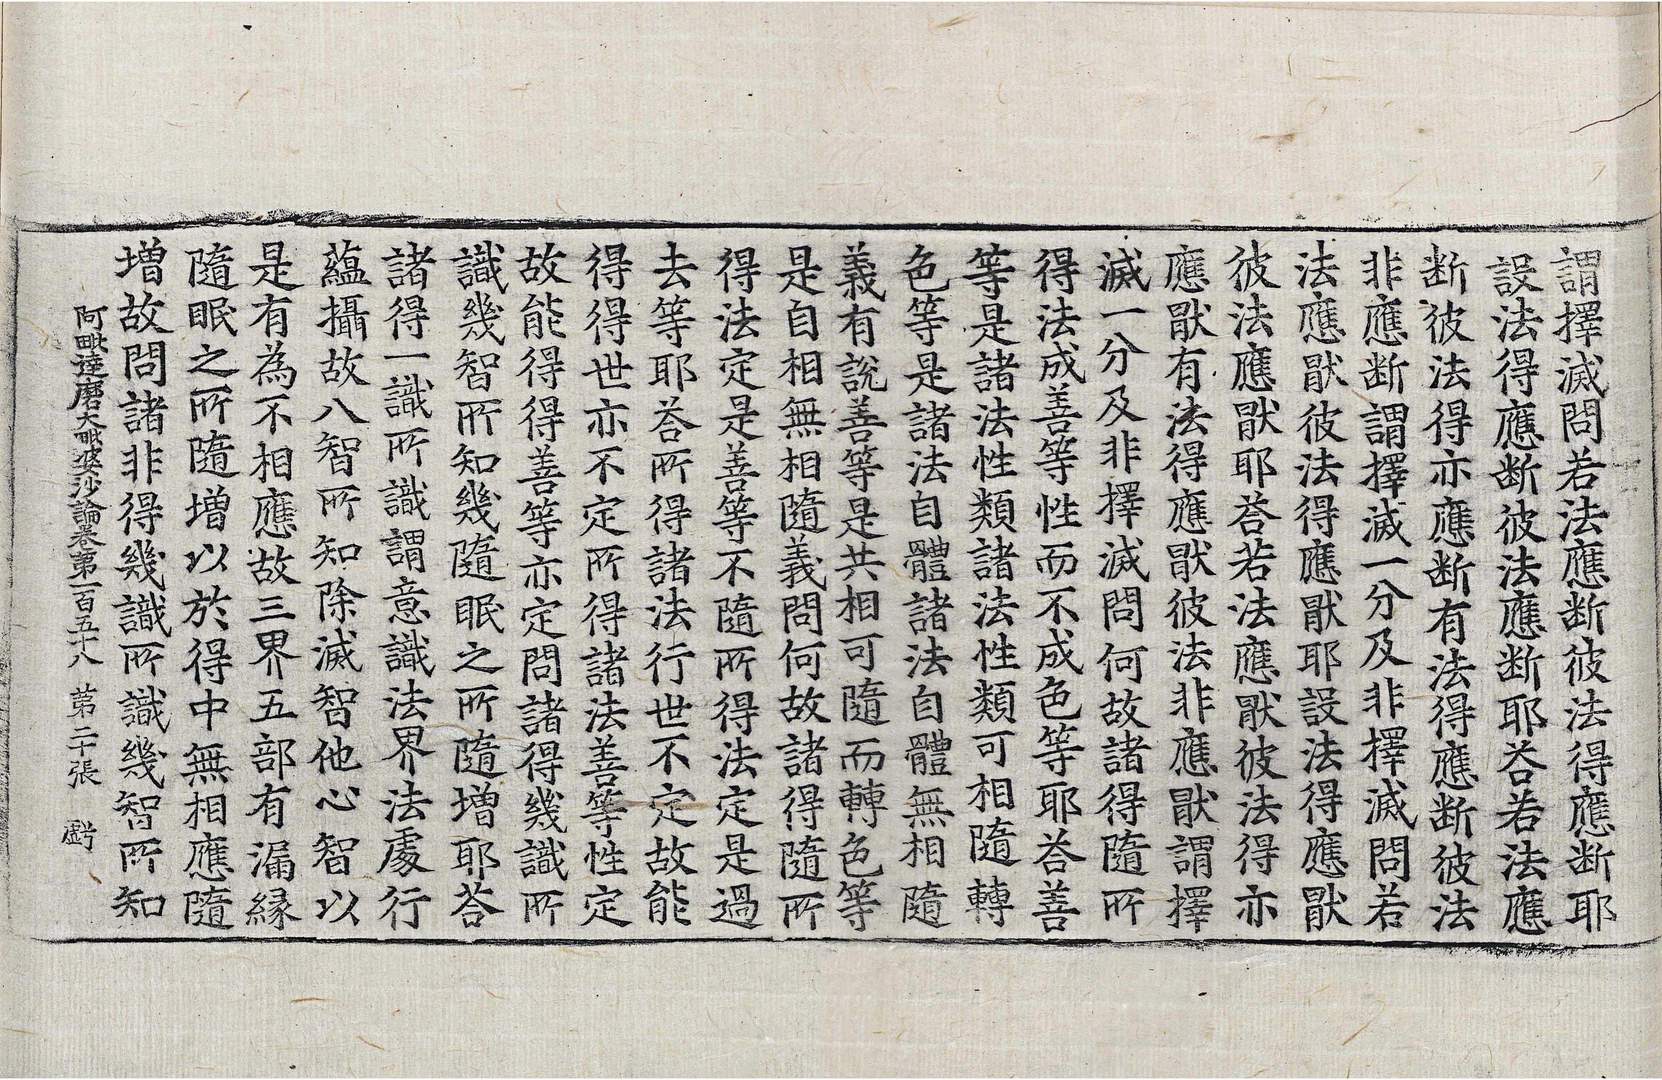 謂擇滅問若法應断彼法得應断耶
設法得應断彼法應断耶荅若法應
断彼法得亦應断有法得應断彼法
非應断謂擇滅一分及非擇滅問若
法應猒彼法得應猒耶設法得應猒
彼法應猒耶荅若法應猒彼法得亦
應猒有法得應猒彼法非應猒謂擇
滅一分及非擇滅問何故諸得隨所
得法成善等性而不成色等耶荅善
等是諸法性類諸法性類可相隨轉
色等是諸法自體諸法自體無相隨
義有說善等是共相可隨而轉色等
是自相無相隨義問何故諸得隨所
得法定是善等不隨所得法定是過
去等耶荅所得諸法行世不定故能
得得世亦不定所得諸法善等性定
故能得得善等亦定問諸得幾識所
識幾智所知幾隨眠之所隨增耶荅
諸得一識所識謂意識法界法處行
蘊攝故八智所知除滅智他心智以
是有為不相應故三界五部有漏縁
隨眠之所隨增以於得中無相應隨
增故問諸非得幾識所識幾智所知
阿毗達磨大毗婆沙論卷第一百五十八 第二十張 虧